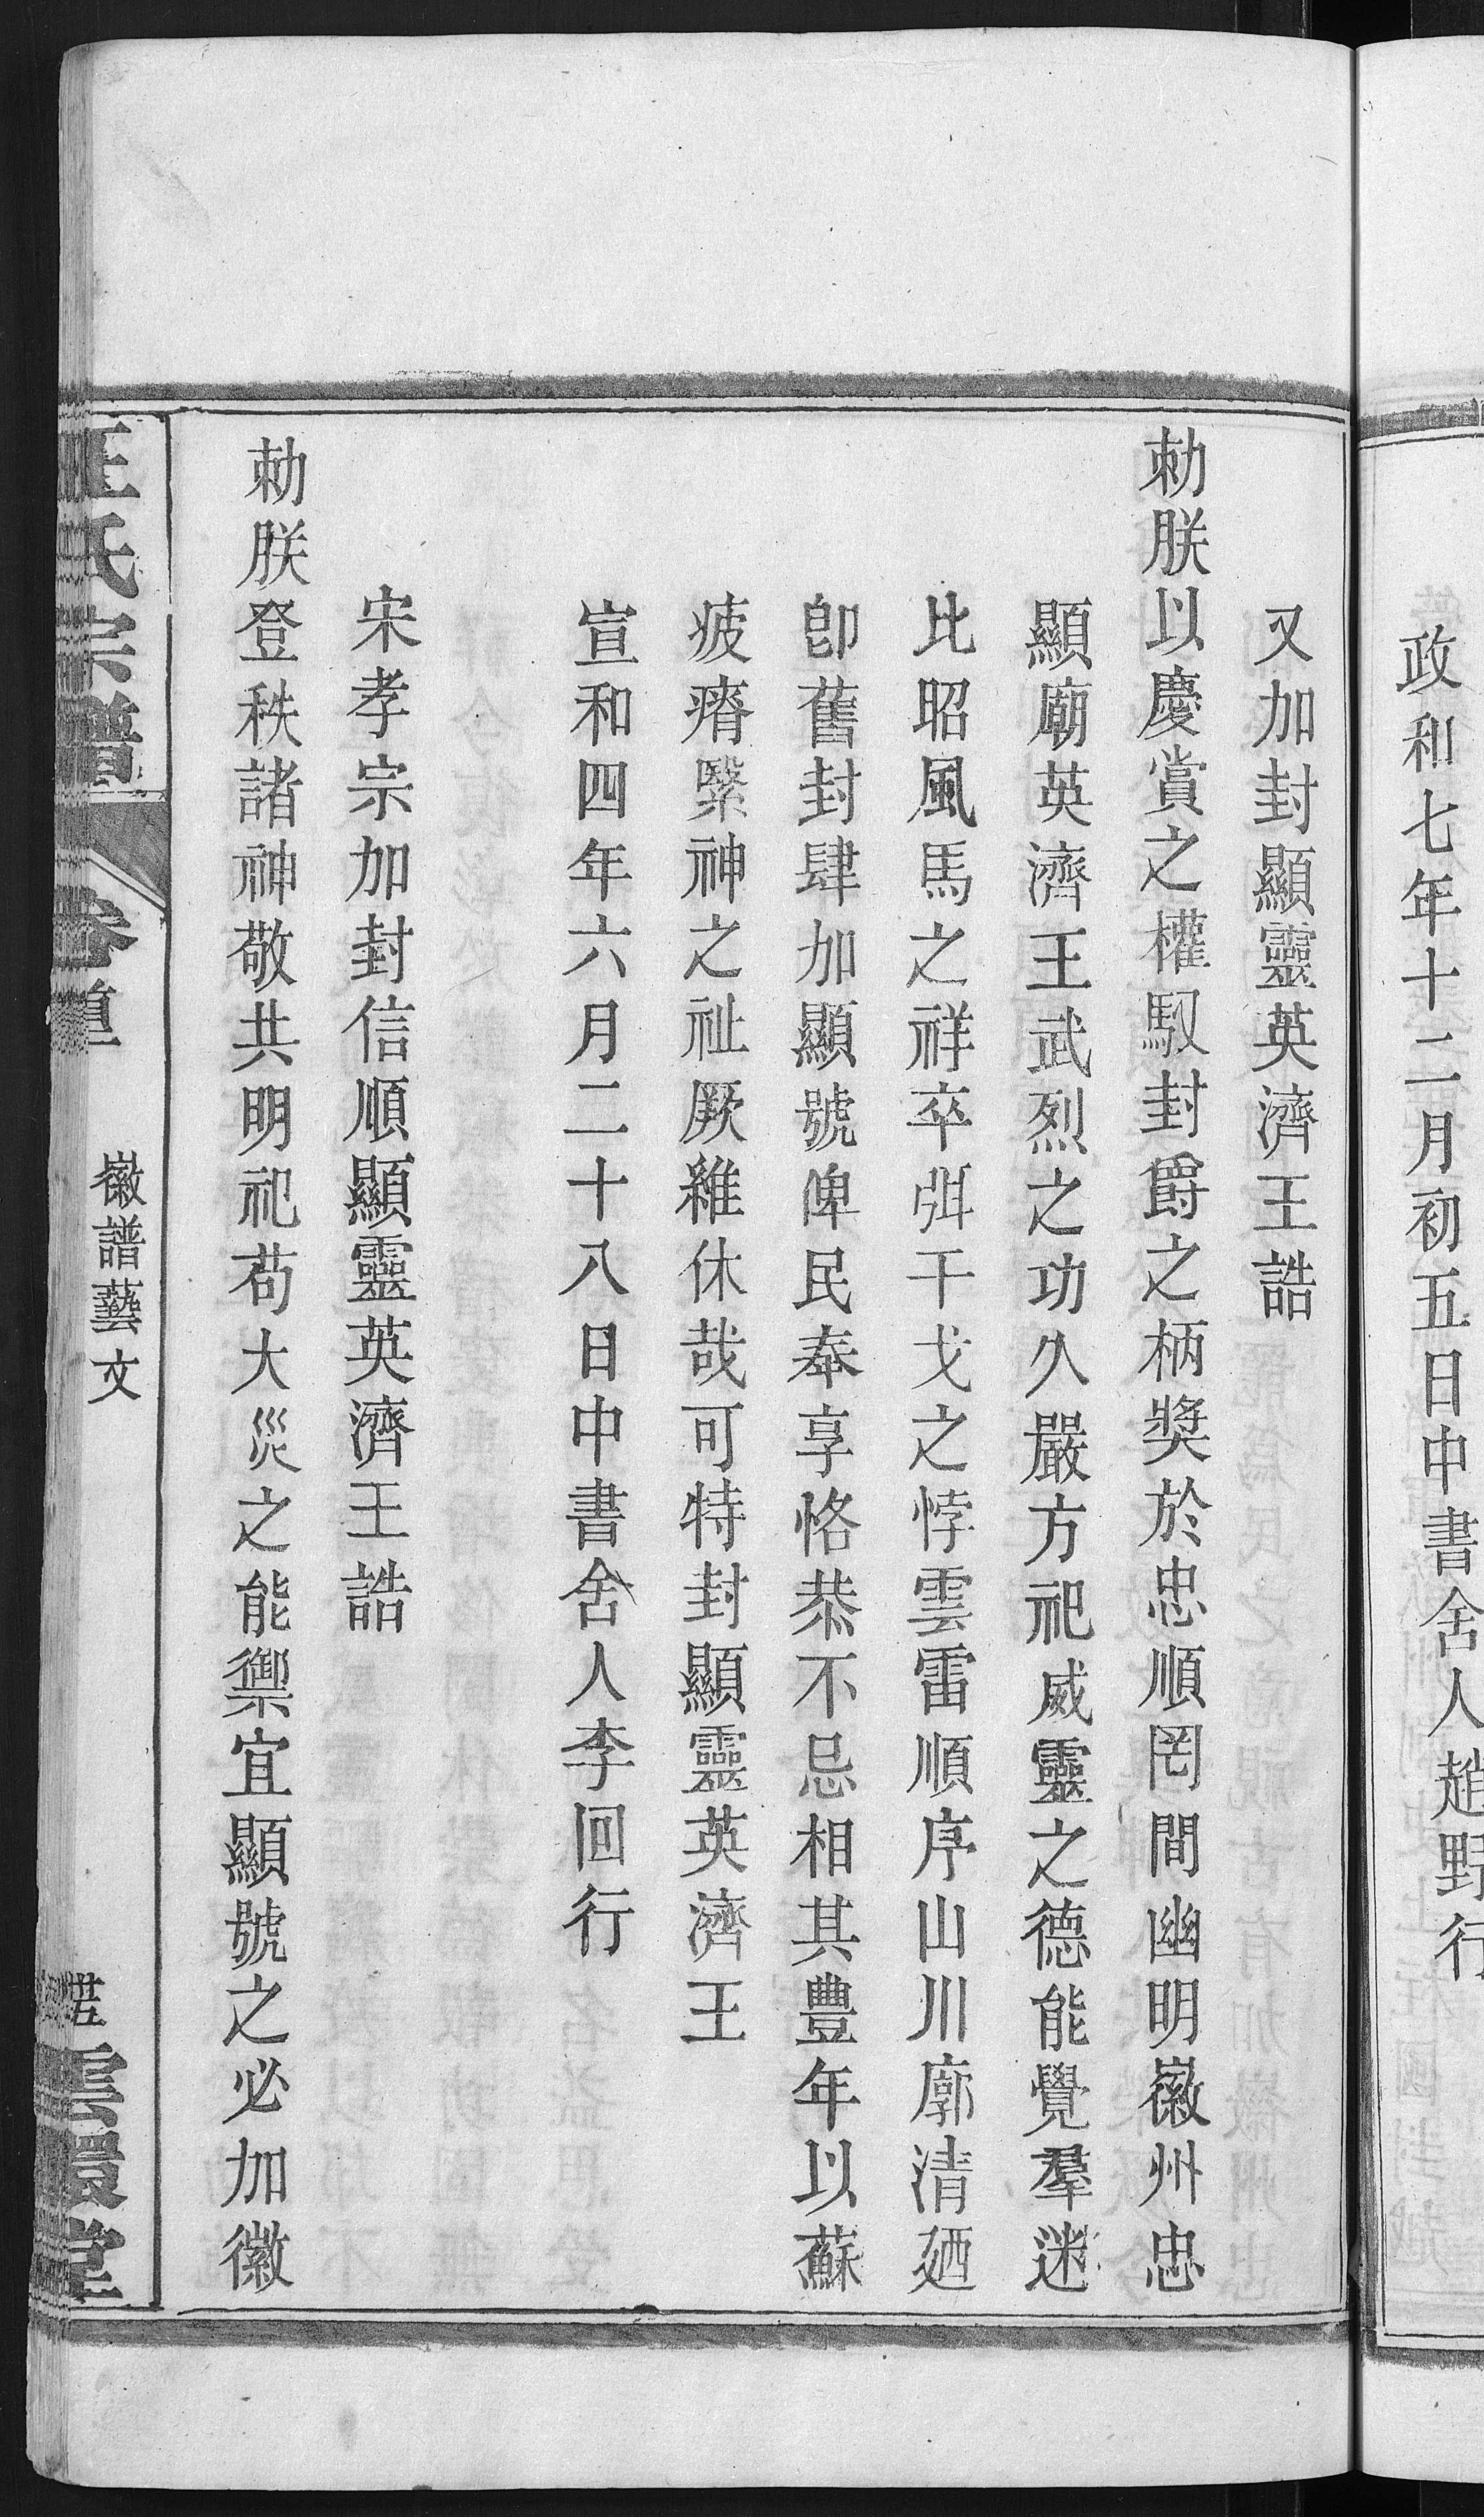 政和七年十二月初五日中書舍人趙野行
又加封顯靈英濟王誥
勅朕以慶賞之權馭封爵之柄獎於忠順罔間幽明徽州忠
顯廟英濟王武烈之功久嚴方祀威靈之德能覺羣迷
比昭風馬之祥卒弭干戈之悖雲雷順序山川廓清廼
卽舊封肆加顯號俾民奉享恪恭不忌相其豐年以蘇
疲瘠緊神之祉厥維休哉可特封顯靈英濟王
宣和四年六月二十八日中書舍人李回行
宋孝宗加封信順顯靈英濟王誥
勅朕登秩諸神敬共明祀苟大災之能禦宜顯號之必加徽
汪氏宗譜
卷首
徽譜藝文
雲環堂